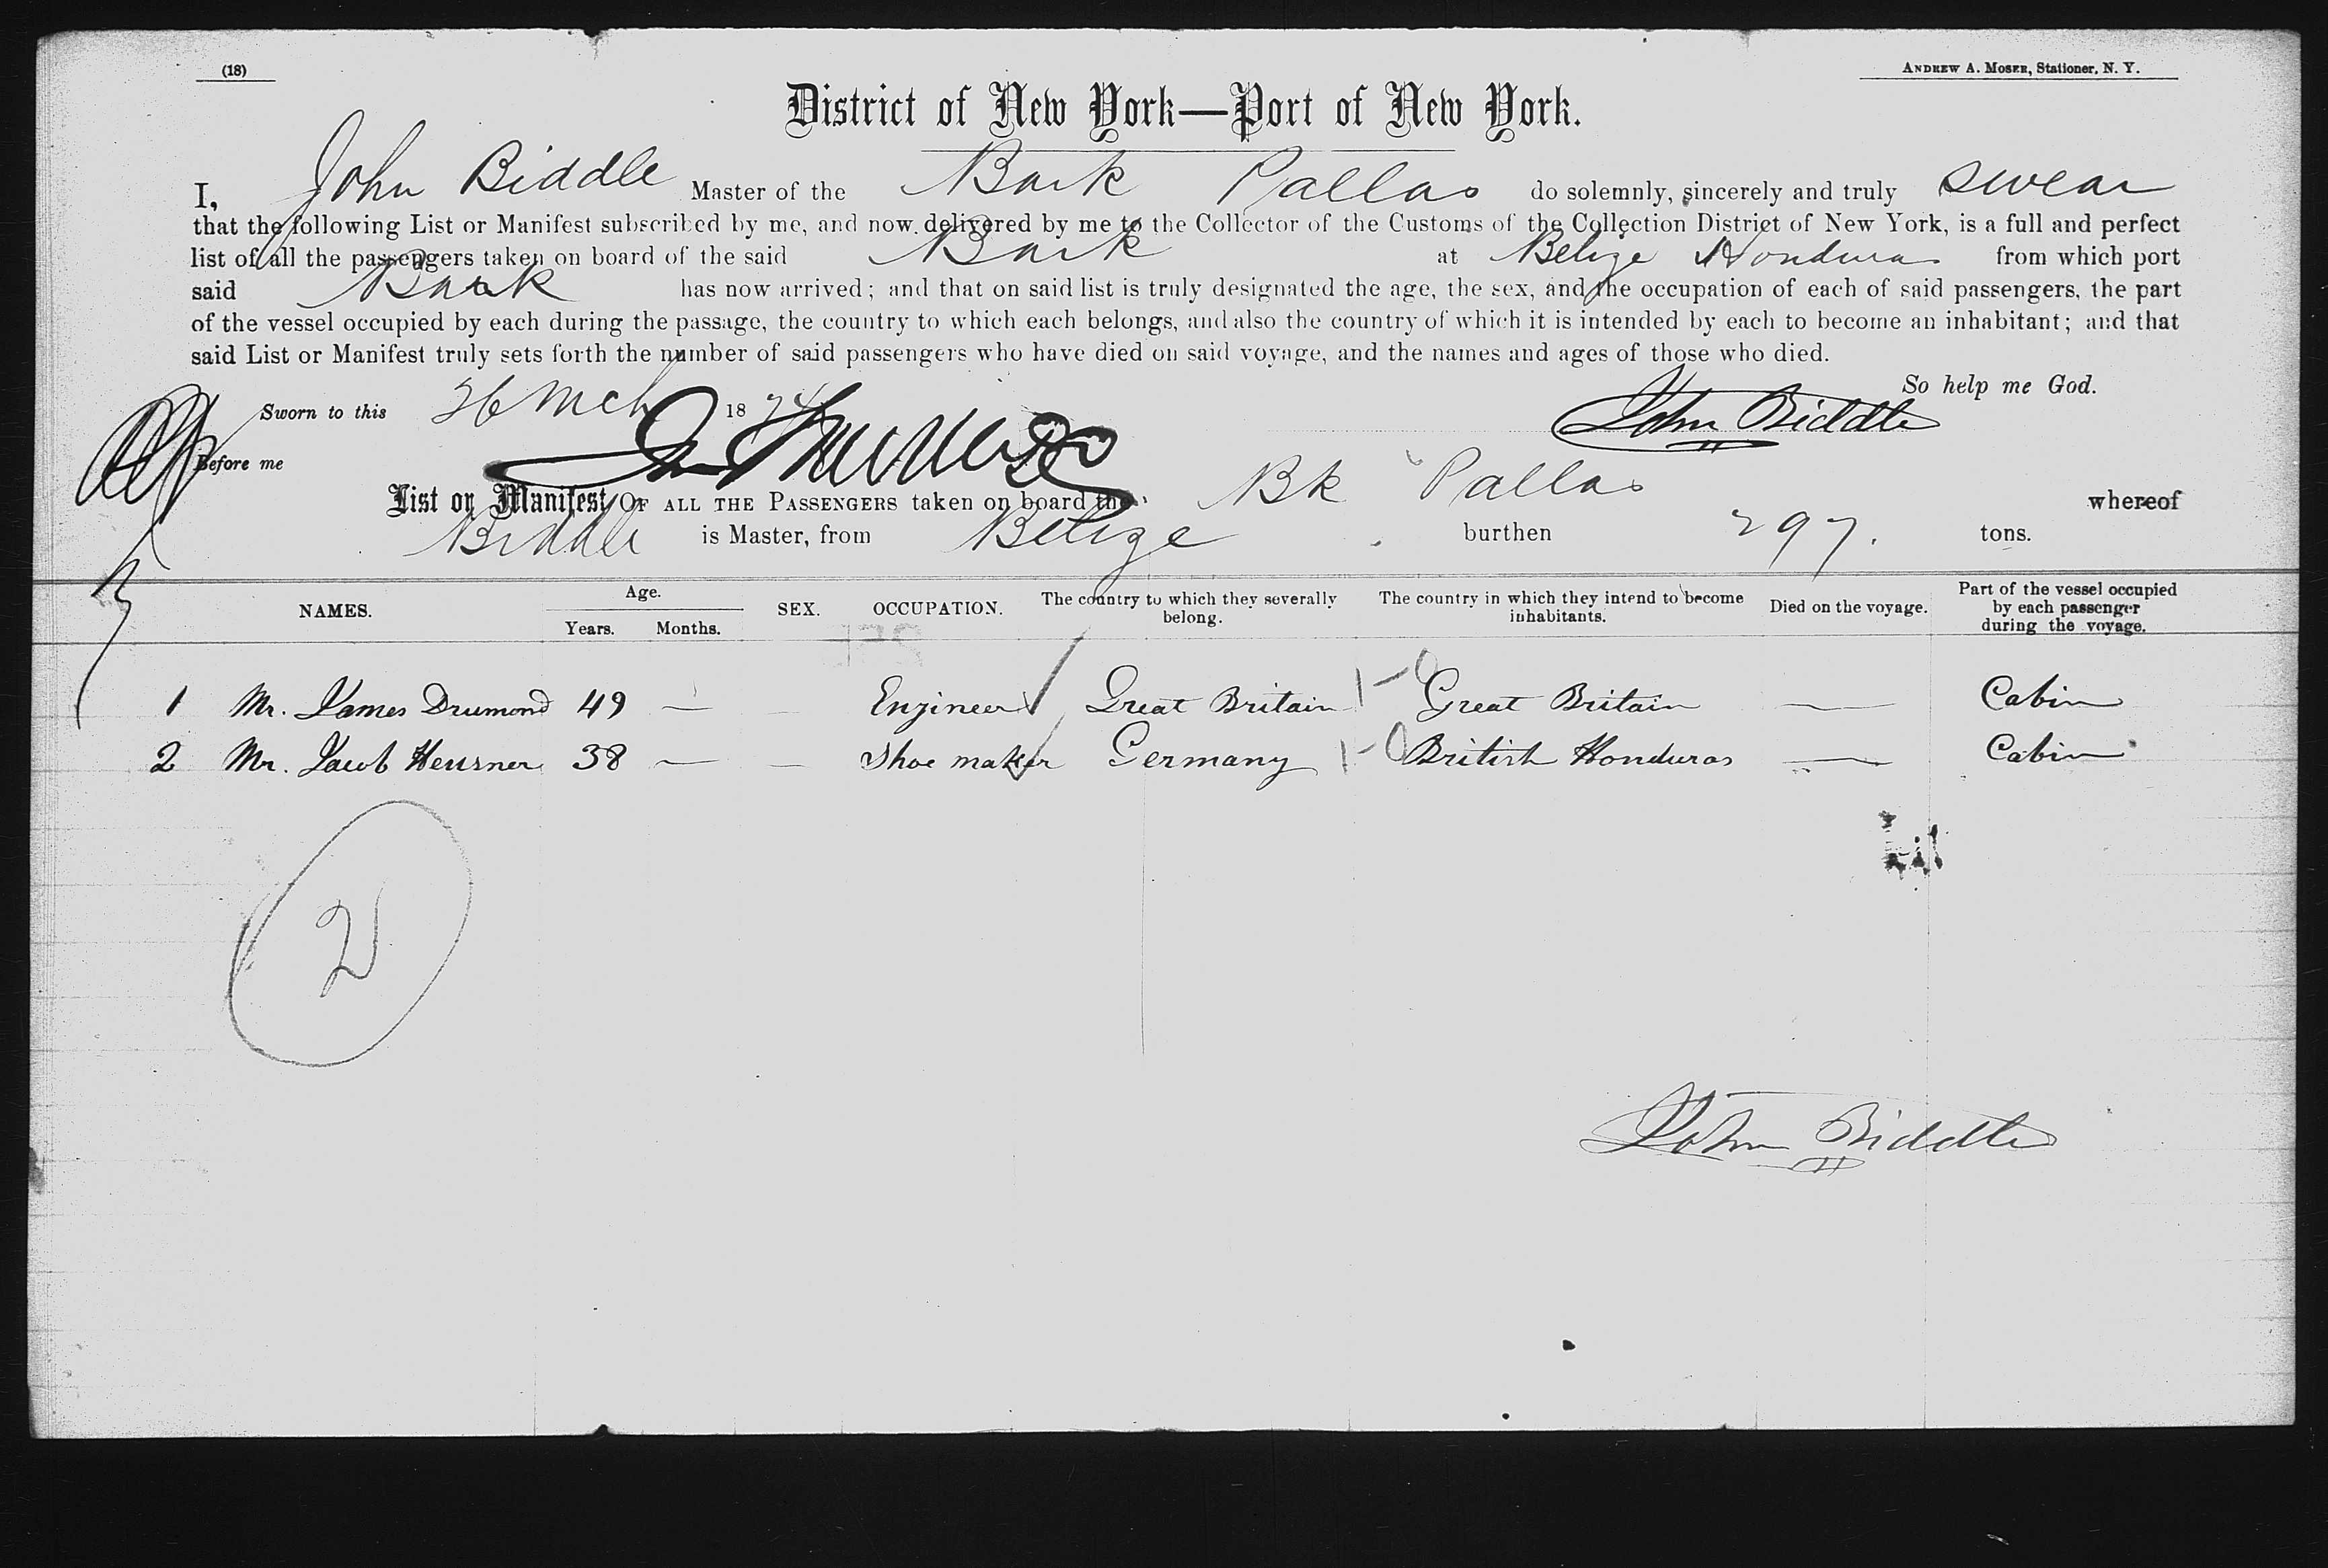 (18)
ANDREW A. MOSER, Stationer, N. Y.
District of New York—Port of New York.
I, John Biddle Master of the Bark Pallas do solemnly, sincerely and truly swear
that the following List or Manifest subscribed by me, and now delivered by me to the Collector of the Customs of the Collection District of New York, is a full and perfect
list of all the passengers taken on board of the said Bark at Belize Honduras from which port
said Bark has now arrived; and that on said list is truly designated the age, the sex, and the occupation of each of said passengers, the part
of the vessel occupied by each during the passage, the country to which each belongs, and also the country of which it is intended by each to become an inhabitant; and that
said List or Manifest truly sets forth the number of said passengers who have died on said voyage, and the names and ages of those who died.
So help me God.
Sworn to this 26 Mch 1874
John Biddle
Before me
List or Manifest OF ALL THE PASSENGERS taken on board the Bk Pallas whereof
Biddle is Master, from Belize burthen 297. tons.
NAMES. Age. Years. Months. SEX. OCCUPATION. The country to which they severally belong. The country in which they intend to become inhabitants. Died on the voyage. Part of the vessel occupied by each passenger during the voyage.
1 Mr. James Drumond 49 — — Engineer Great Britain 1-0 Great Britain — Cabin
2 Mr. Jacob Heusner 38 — — Shoe maker Germany 1-0 British Honduras — Cabin
2
John Biddle